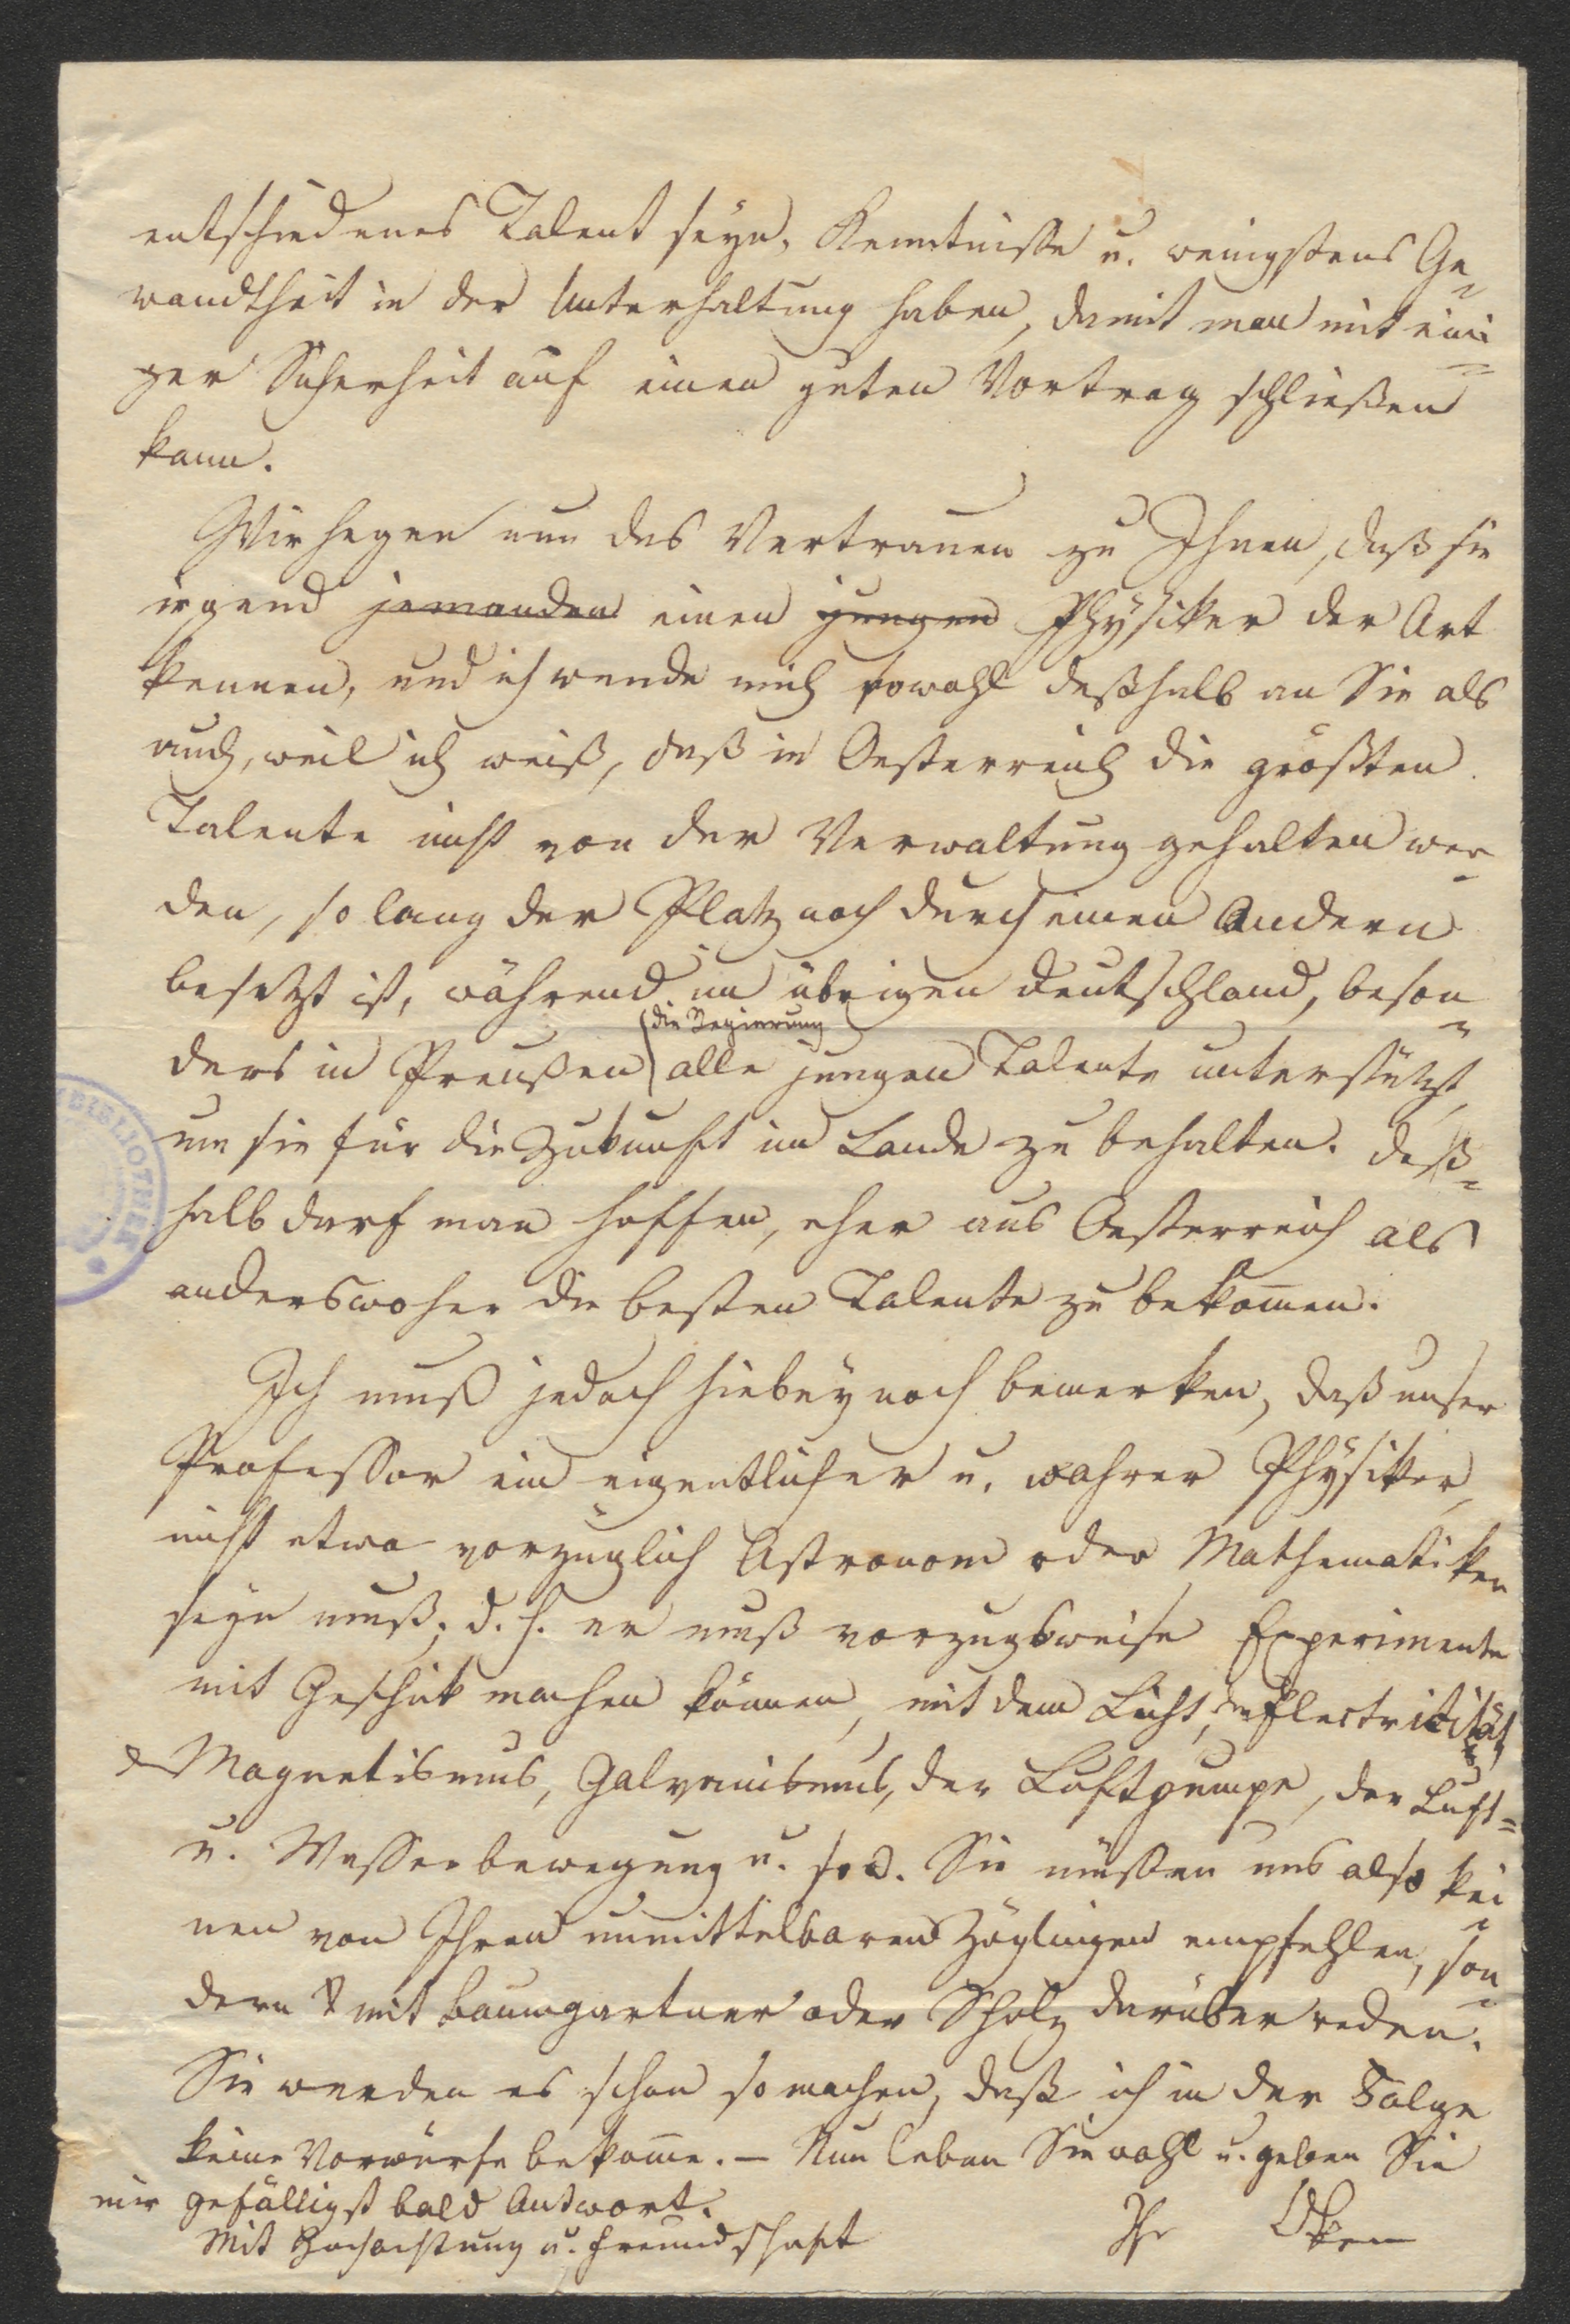 entschiedenes Talent seyn, Kenntnisse u. wenigstens Ge=
wandtheit in der Unterhaltung haben, damit man mit eini=
ger Sicherheit auf einen guten Vortrag schließen
kann.
Wir hegen nun das Vertrauen zu Ihnen, daß sie
irgend jemanden einen jungen Physiker der Art
kennen, und ich wende mich sowohl deßhalb an Sie als
auch, weil ich weiß, daß in Oesterreich die größten
Talente nicht von der Verwaltung gehalten wer=
den, so lang der Platz noch durch einen Andern
besetzt ist, während im übrigen Deutschland, beson=
die Regierung
ders in Preußen alle jungen Talente unterstützt,
um sie für die Zukunft im Lande zu behalten. Deß=
halb darf man hoffen, eher aus Oesterreich als
anderswoher die besten Talente zu bekom̅en.
Ich muß jedoch hiebey noch bemerken, daß unser
Professor ein eigentlicher u. wahrer Physiker,
nicht etwa vorzüglich Astronom oder Mathematiker
seyn muß; d. h. er muß vorzugsweise Experimente
mit Geschick machen können, mit dem Licht, der Electricität,
Magnetismus, Galvanismus, der Luftpumpe, der Luft=
u. Wasserbewegung u. s. w. Sie müßen uns also kei=
nen von Ihren unmittelbaren Zöglingen empfehlen, son=
dern mit Baumgartner oder Scholz darüber reden.
Sie werden es schon so machen, daß ich in der Folge
keine Vorwürfe bekom̅e. – Nun leben Sie wohl u. geben Sie
mir gefälligst bald Antwort.
Mit Hochachtung u. Freundschaft Ihr Oken
BIBLIOTHEK